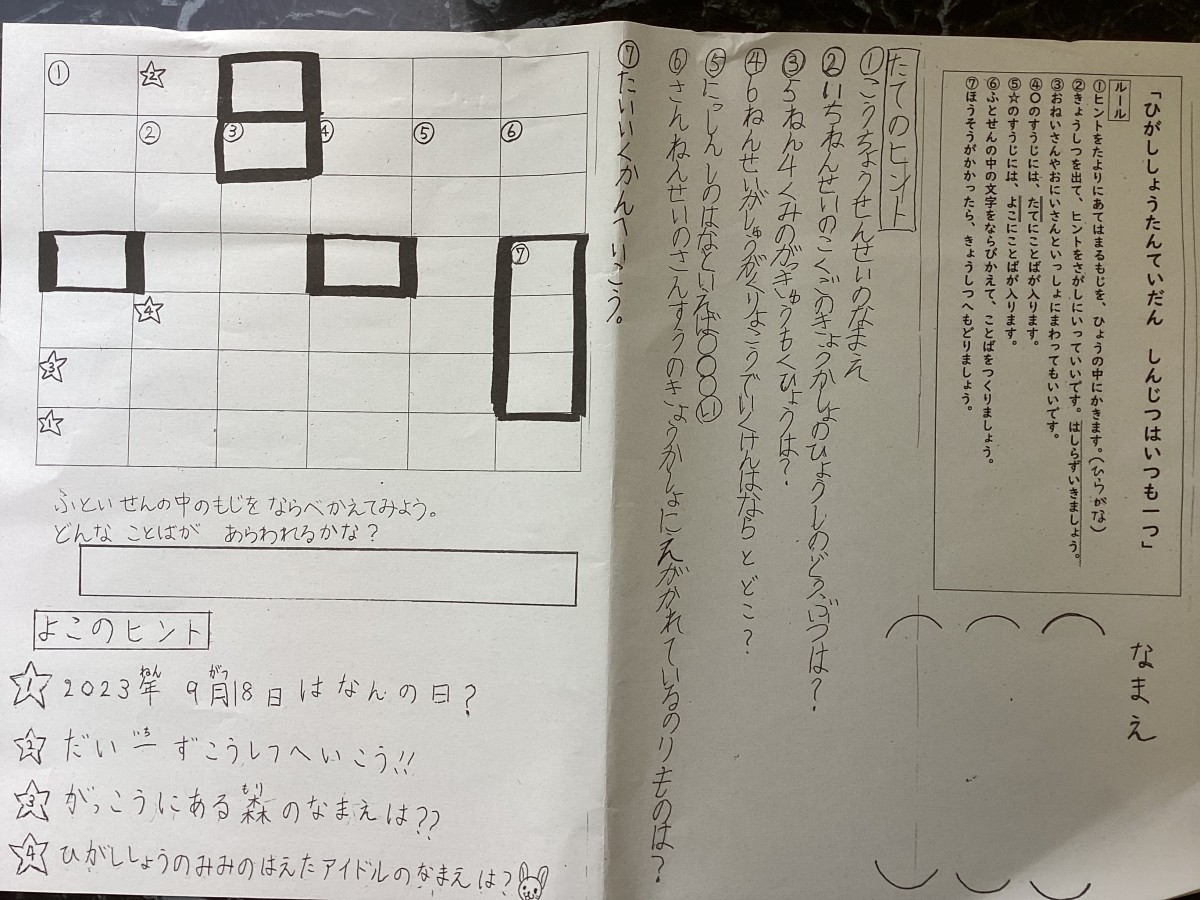 「ひがししょうたんていだん　しんじつはいつも一つ」
ルール
①ヒントをたよりにあてはまるもじを、ひょうの中にかきます。(ひらがな)
②きょうしつを出て、ヒントをさがしにいっていいです。はしらずいきましょう。
③おねいさんやおにいさんといっしょにまわってもいいです。
④〇のすうじには、たてにことばが入ります。
⑤☆のすうじには、よこにことばが入ります。
⑥ふとせんの中の文字をならびかえて、ことばをつくりましょう。
⑦ほうそうがかかったら、きょうしつへもどりましょう。
なまえ
たてのヒント
①こうちょうせんせいのなまえ
②いちねんせいのこくごのきょうかしょのひょうしのどうぶつは?
③5ねん4くみのがっきゅうもくひょうは?
④6ねんせいがしゅうがくりょこうでいくけんはならとどこ?
⑤にっしんしのはなといえば〇〇〇い
⑥さんねんせいのさんすうのきょうかしょにえがかれているのりものは?
⑦たいいくかんへいこう。
① ☆2
② ③ ④ ⑤ ⑥
⑦
☆4
☆3
☆1
ふといせんの中のもじをならべかえてみよう。
どんなことばが　あらわれるかな?
よこのヒント
☆1 2023年ねん 9月がつ18日はなんの日?
☆2 だい一いちずこうしつへいこう!!
☆3 がっこうにある森もりのなまえは??
☆4 ひがししょうのみみのはえたアイドルのなまえは?